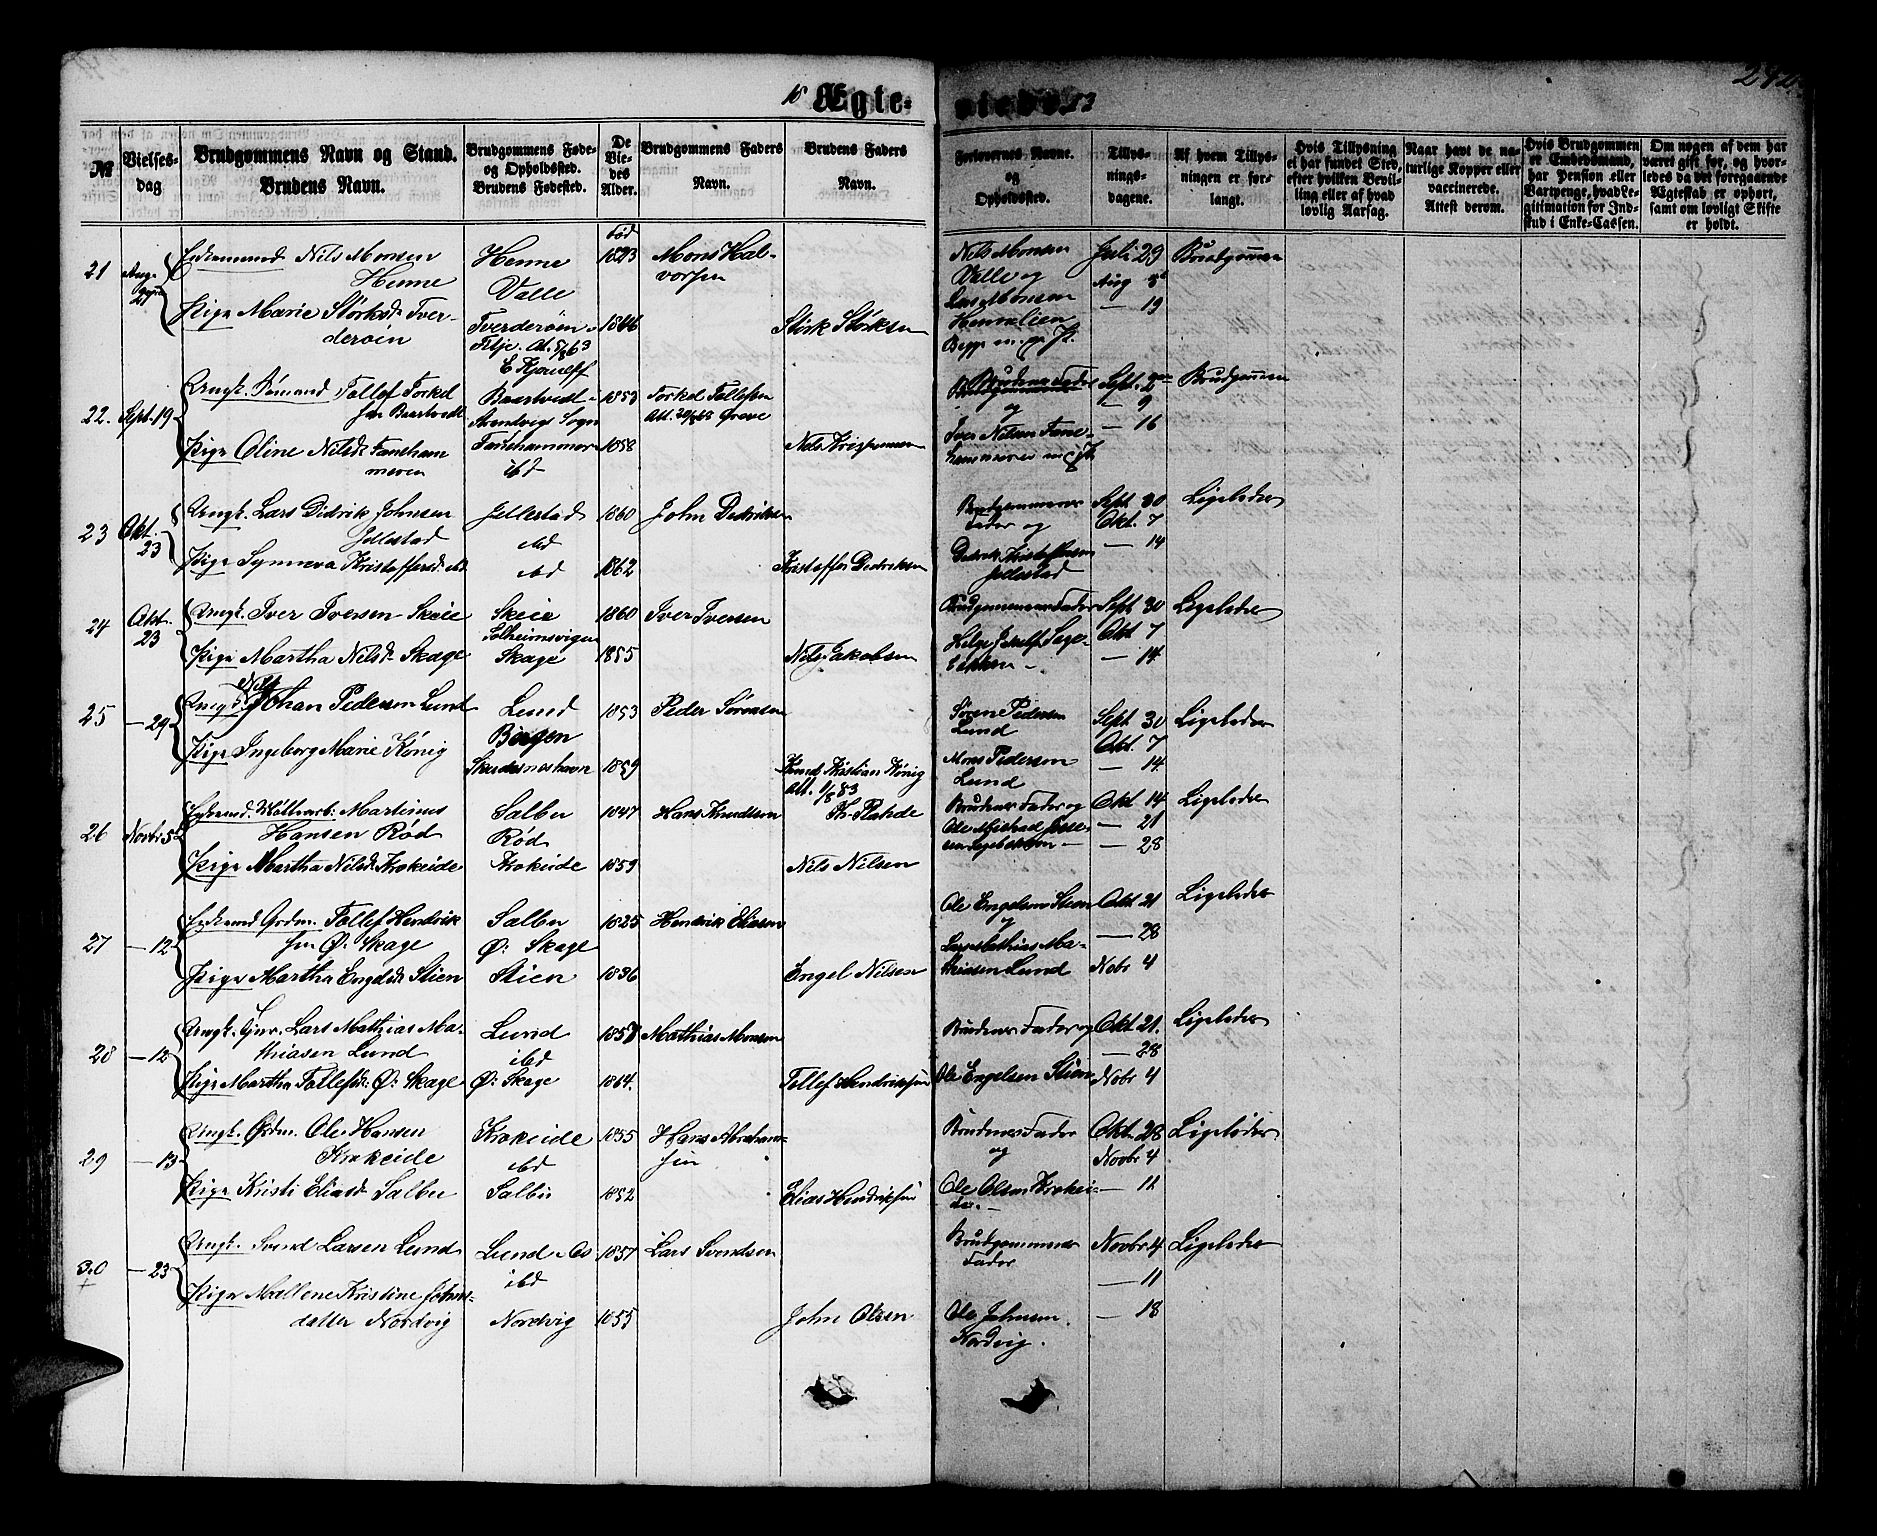 Ægte-
№
Vielses-
dag
Brudgommens Navn og Stand.
Brudens Navn.
Brudgommens Føde-
og Opholdssted.
Brudens Fødested.
De
Vie-
des
Alder.
Brudgommens Faders
Navn.
Brudens Faders
Navn.
Forlovernes Navne.
og
Opholdssted.
Tillys-
nings-
dagene.
Af hvem Tillys-
ningen er for-
langt.
Hvis Tillysning
ei har fundet Sted,
efter hvilken Bevil-
ling eller af hvad
lovlig Aarsag.
Naar havt de na-
turlige Kopper eller
vaccinerede.
Attest derom.
Hvis Brudgommen
er Embedsmand,
har Pension eller
Vartpenge, hvad Le-
gitimation for Ind-
skud i Enke-Cassen.
Om nogen af dem har
været gift før, og hvor-
ledes da det foregaaende
Ægteskab er ophørt,
samt om lovligt Skifte
er holdt.
21
Enkemand Nils Monsen
Henne
Pige Marie Størksd. Tver-
derøin
Henne
Valle
Tverderøin
født
1846
Mons Hal-
vorsen
Størk Størksen
Nils Monsen
Valle og
Lars Monsen
Juli 29
Aug 5
— 19
Brudgommen
22. Sept. 19
Ungk. Sømand Tollef Torkel
sen Baartvedt
Pige Oline Nilsd. Faneham
meren
Baartvedt
Arendvigs Sogn
Fanehammer
ibd
1853
1858
Torkel Tollefsen
Nils
og
Iver Nilsen Fane-
Sept. 2
— 9
— 16
Brudgommen
23 Okt. 23
Ungk. Lars Didrik Johnsen
Jellestad
Pige Synneva Kristoffersd. ibd
Jellestad
ibd
ibd
1860
1862
John Didriksen
Kristoffer Didriksen
Brudgommens
Fader og
Didrik Kristoffersen
Jellestad
Sept. 30
Okt. 7
— 14
Ligeledes
24 Okt. 23
Ungk. Iver Iversen Skeie
Pige Martha Nilsd. Skage
Skeie
Solheimsvigen
Skage
1860
1855
Iver Iversen
Nils Jakobsen
Brudgommens Fader
Sept 30
Okt 7
— 14.
Ligeledes
25 — 29
Ungk. Johan Pedersen Lund
Pige Ingeborg Marie König
Lund
Bergen
Skudesneshavn
1853
1859
Peder Sørensen
Knud Kristian König
Søren Pedersen
Lund
Mons Pedersen
Lund
Sept 30
Okt. 7
— 14.
Ligeledes
26 Novbr 5
Martinus
Hansen Rød
Pige Martha Nilsd. Krokeide
Salbu
Rød
Krokeide
1847
1859
Hans Knudsen
Nils Nilsen
Brudens Fader og
Okt 14
— 21
— 28
Ligeledes
27 — 12
Enkemd Grdm. Tollef Hendrik
sen Ø: Skage
Pige Martha Engelsd. Stien
Salbu
Ø: Skage
Stien
1825
1836
Hendrik Eliasen
Engel Nilsen
Ole Engelsen Stien
og
Lars Mathias Ma-
thiasen Lund
Okt 21
— 28
Nobr 4
Ligeledes
28 — 12
Ungk. Lars Mathias Ma-
thiasen Lund
Pige Martha Tollefsd. Ø: Skage
Lund
ibd
Ø: Skage
1857
1864.
Mathias Monsen
Tollef Hendriksen
Brudens Fader og
Ole Engelsen Stien
Okt 21.
— 28
Nobr 4
Ligeledes
29 — 13
Ungk. Grdm. Ole Hansen
Krokeide
Pige Kristi Eliasd. Salbu
Krokeide
ibd
Salbu
1855
1852
Hans Abraham-
sen
Elias Hendriksen
Brudens Fader
og
Ole Olsen Krokei-
de.
Okt. 28
Novbr 4
— 11
Ligeledes
30 — 23
Ungk. Svend Larsen Lund
Pige Mallene Kristine Johns-
datter Nordvig
Lund
ibd
Nordvig
1857
1855
Lars Svendsen
John Olsen
Brudgommens
Fader
Ole Johnsen
Nordvig.
Novbr 4
— 11
— 18
Ligeledes